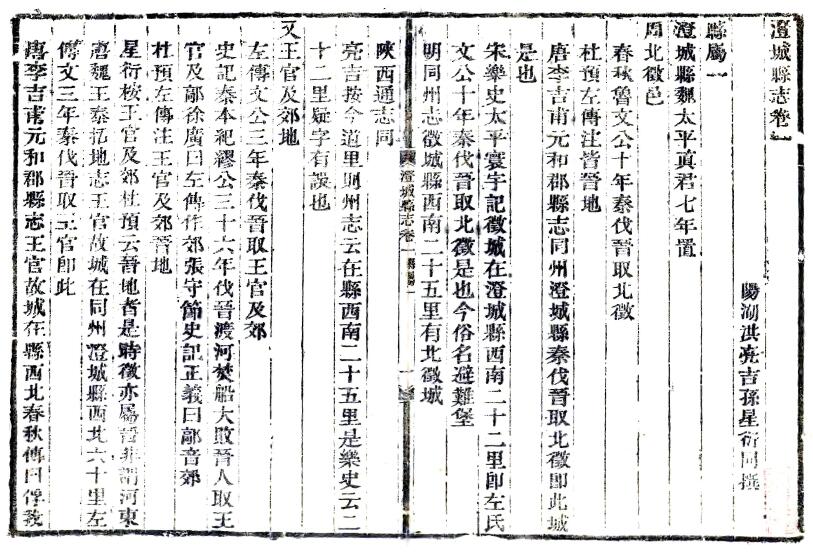 澄城縣志卷一
陽湖洪亮吉孫星衍同撰
縣屬一
澄城縣魏太平真君七年置
周北徵邑
春秋魯文公十年秦伐晉取北徵
杜預左傳注晉晉地
唐李吉甫元和郡縣志同州澄城縣秦伐晉取北徵即此城
是也
宋樂史太平寰宇記徵城在澄城縣西南二十二里即左氏
文公十年秦伐晉取北徵是也今俗名避難堡
明同州志徵城縣西南二十五里有北徵城
澄城縣志卷一 縣屬一
陝西通志同
亮吉按今道里則州志云在縣西南二十五里是樂史云二
十二里疑字有誤也
又王官及郊地
左傳文公三年秦伐晉取王官及郊
史記秦本紀繆公三十六年伐晉渡河焚船大敗晉人取王
官及鄗徐廣曰左傳作郊張守節史記正義曰鄗音郊
杜預左傳注王官及郊晉地
星衍按王官及郊杜預云晉地者是時徵亦屬晉非謂河東
唐魏王泰括地志王官故城在同州澄城縣西北六十里左
傳文三年秦伐晉取王官即此
唐李吉甫元和郡縣志王官故城在縣西北春秋傳曰俘我